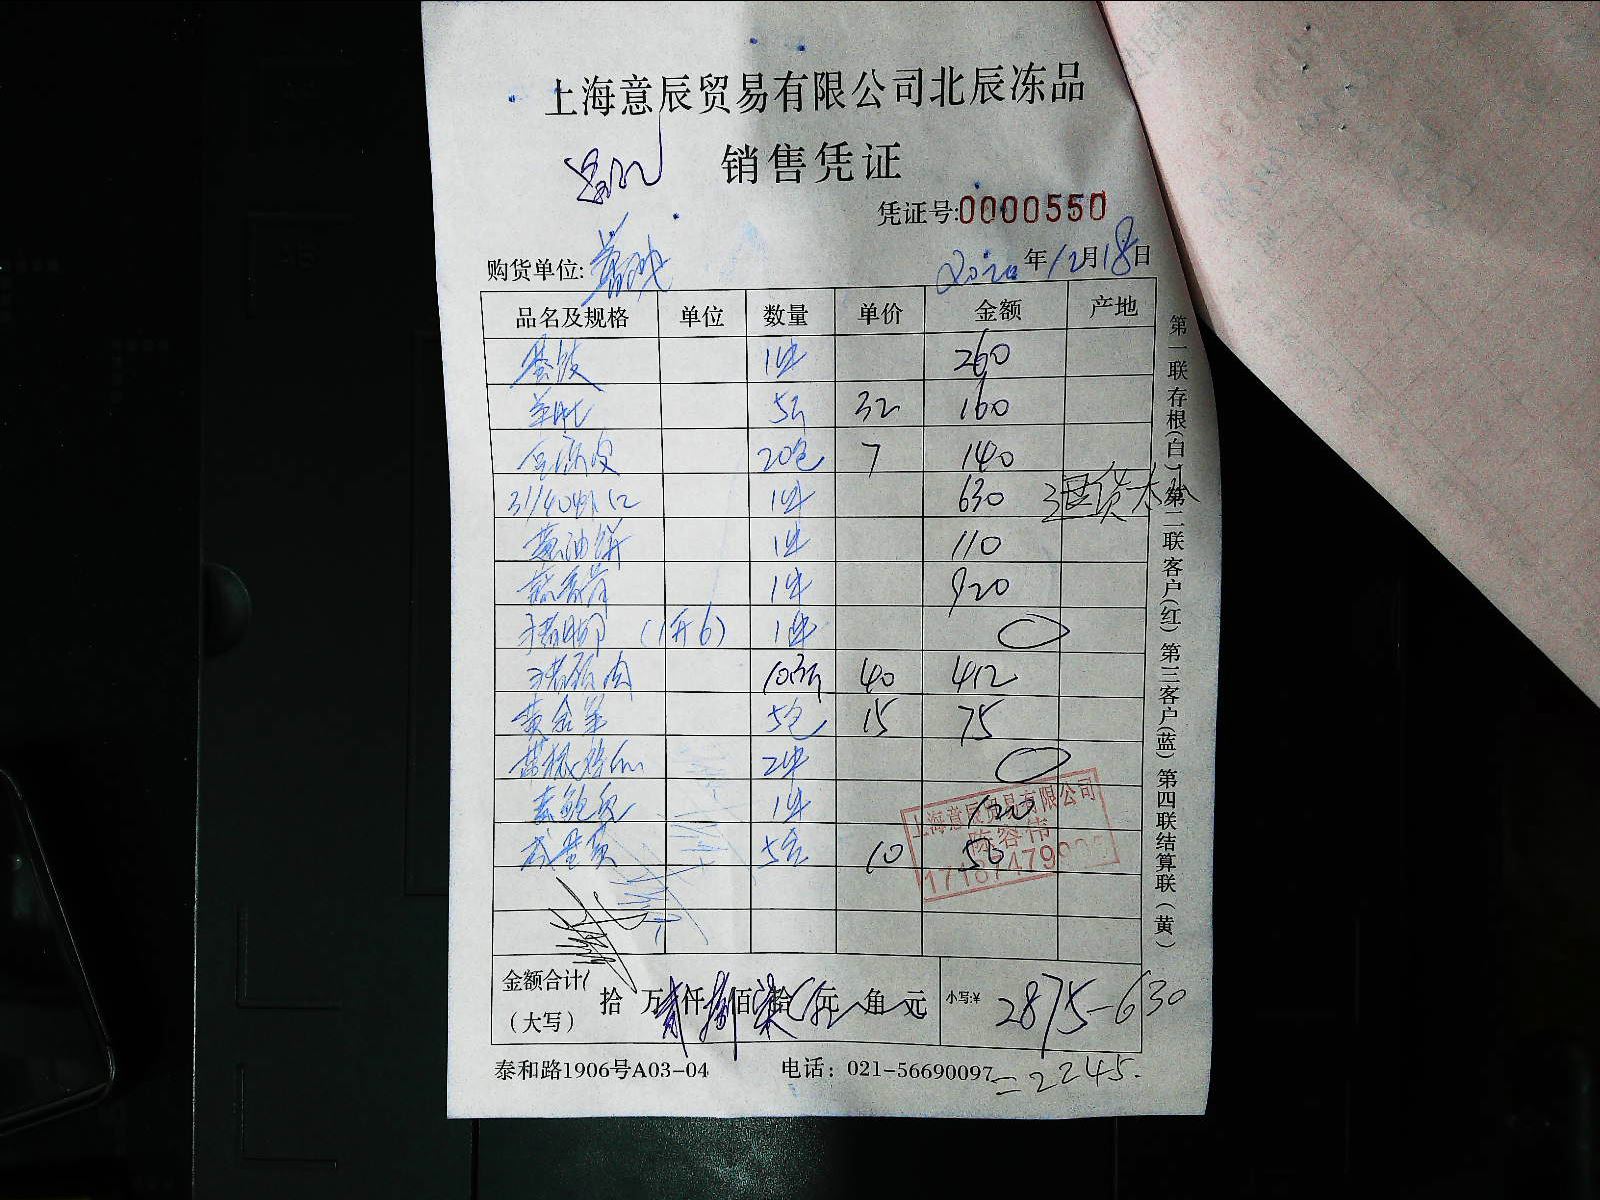 上海意辰贸易有限公司北辰冻品
销售凭证
凭证号:0000550
购货单位: 2020年12月18日
品名及规格 单位 数量 单价 金额 产地
1件 260
羊肚 5斤 32 160
20包 7 140
31/40虾仁 1件 630 退货
黄油饼 1件 110
1件 920
猪脚 (1开6) 1件 0
猪 肉 10.3斤 40 412
黄金 5包 15 75
2件 0
素鲍鱼 1件 120
5 10 50
上海意辰贸易有限公司
金额合计
(大写) 拾 万 贰仟 捌佰 柒拾 伍元 角 元 小写:¥ 2875-630
=2245.
泰和路1906号A03-04 电话：021-56690097
第一联存根(白)第二联客户(红)第三客户(蓝)第四联结算联(黄)